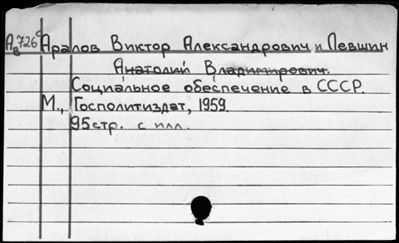 Ав726с Аралов Виктор Александрович и Левшин
Анатолий Владимирович.
Социальное обеспечение в СССР.
М., Госполитиздат, 1959.
95стр. с илл.